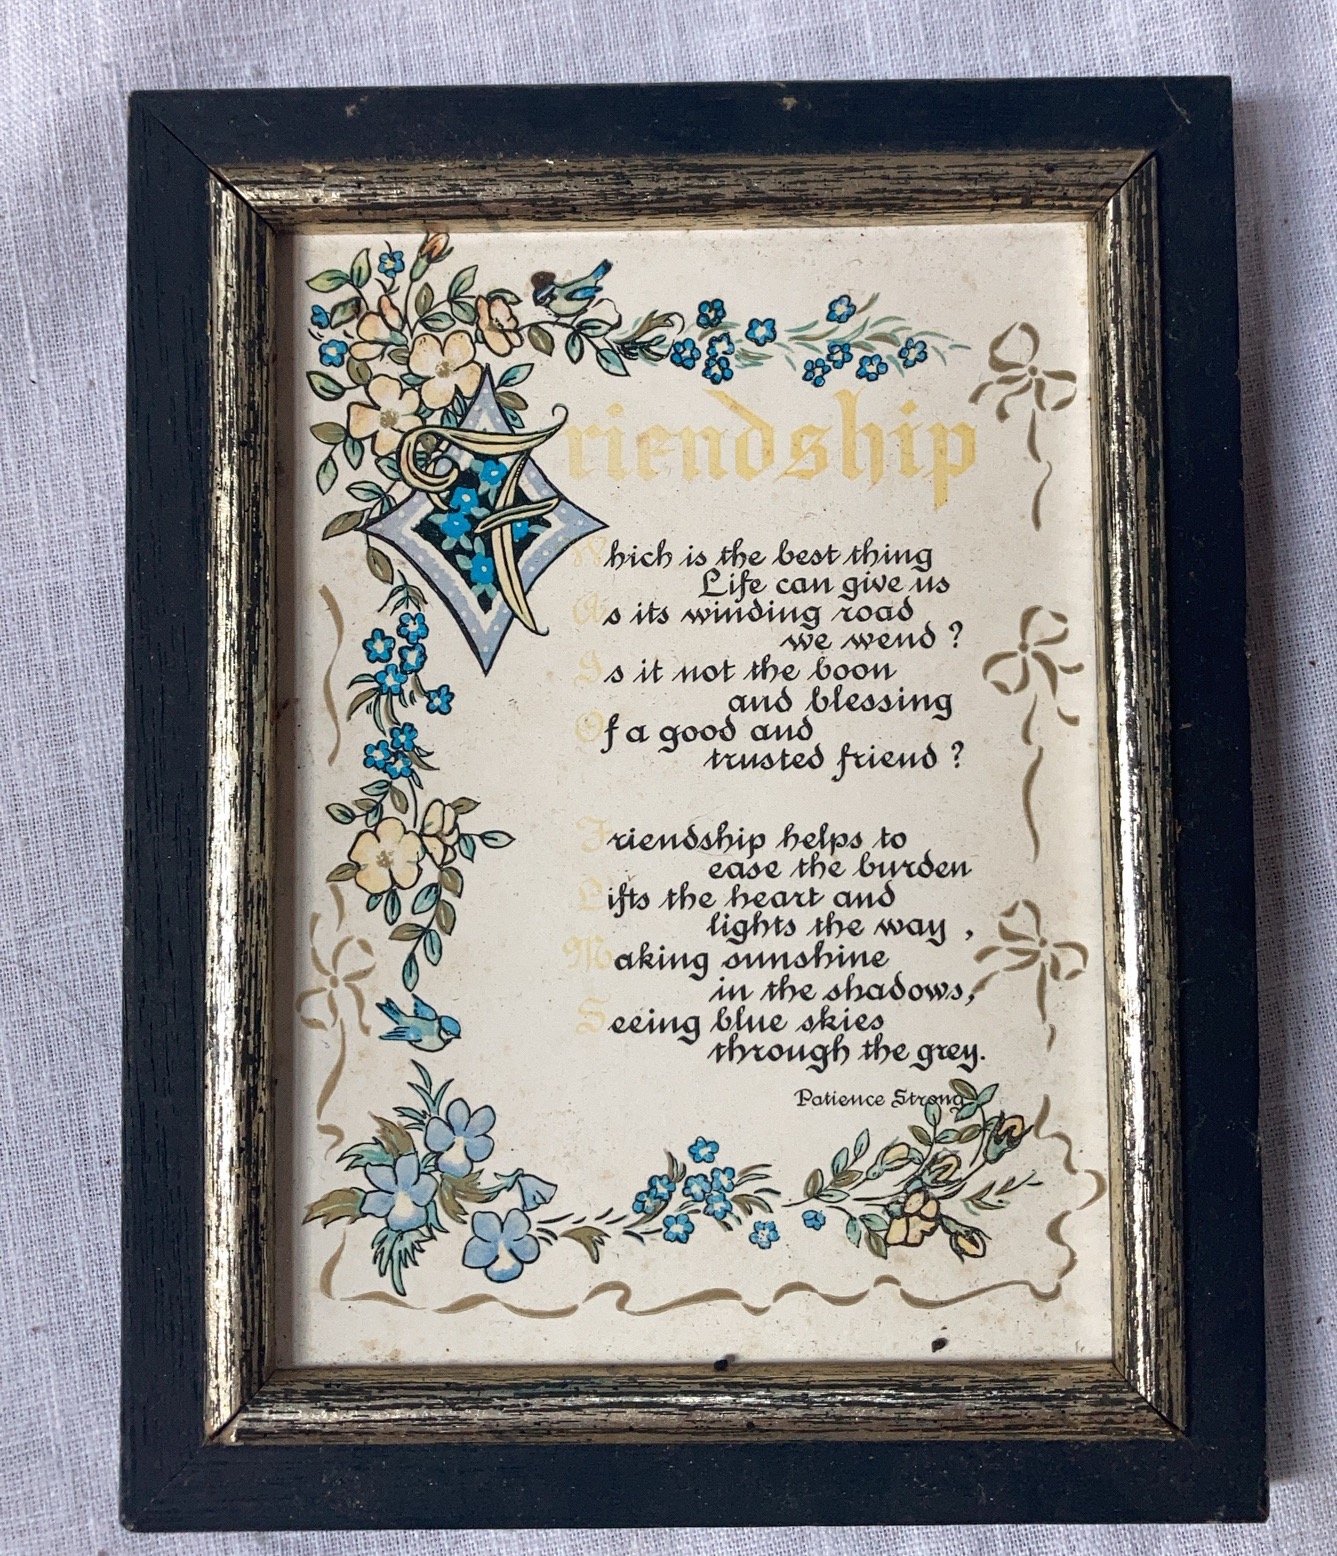 Friendship
Which is the best thing
Life can give us
As its winding road
we wend ?
Is it not the boon
and blessing
Of a good and
trusted friend ?
Friendship helps to
ease the burden
Lifts the heart and
lights the way ,
Making sunshine
in the shadows,
Seeing blue skies
through the grey.
Patience Strong